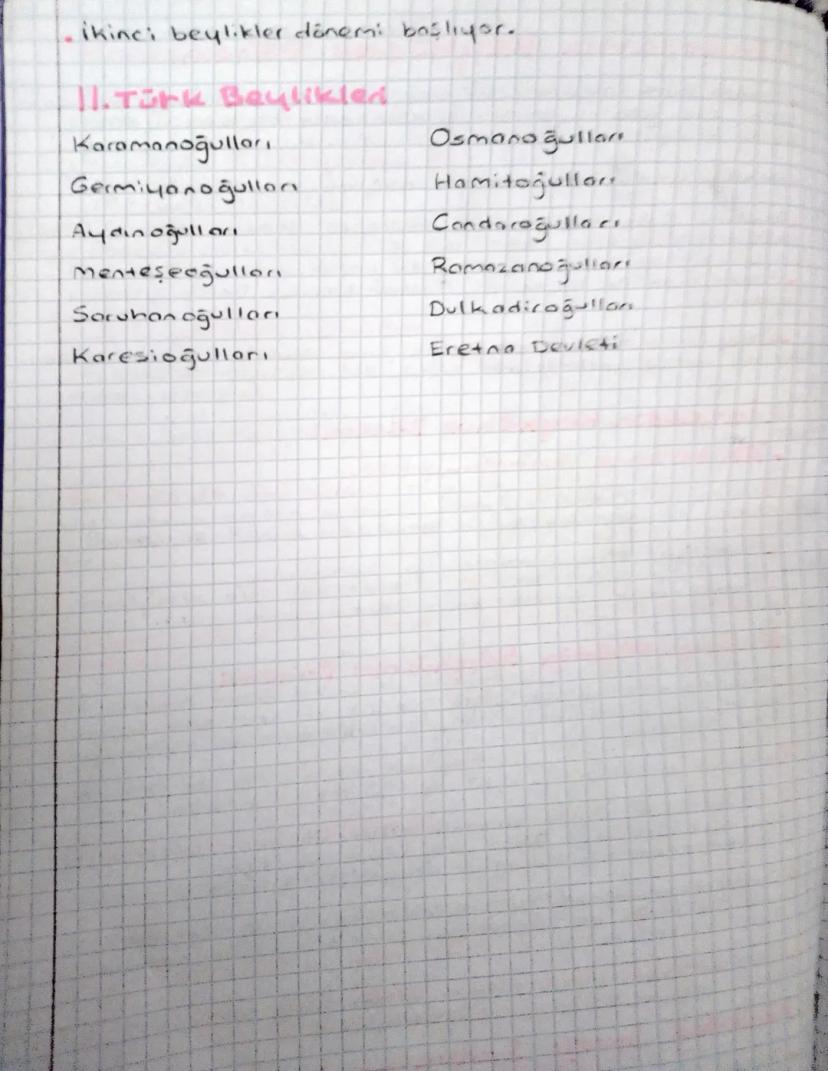 . ikinci beylikler dönemi başlıyor.
II. Türk Beylikleri
Karamanoğulları
Germiyanoğulları
Aydınoğulları
Menteşeoğulları
Saruhanoğulları
Karesioğulları
Osmanoğulları
Hamitoğulları
Candaroğulları
Ramazanoğulları
Dulkadiroğulları
Eretna Devleti